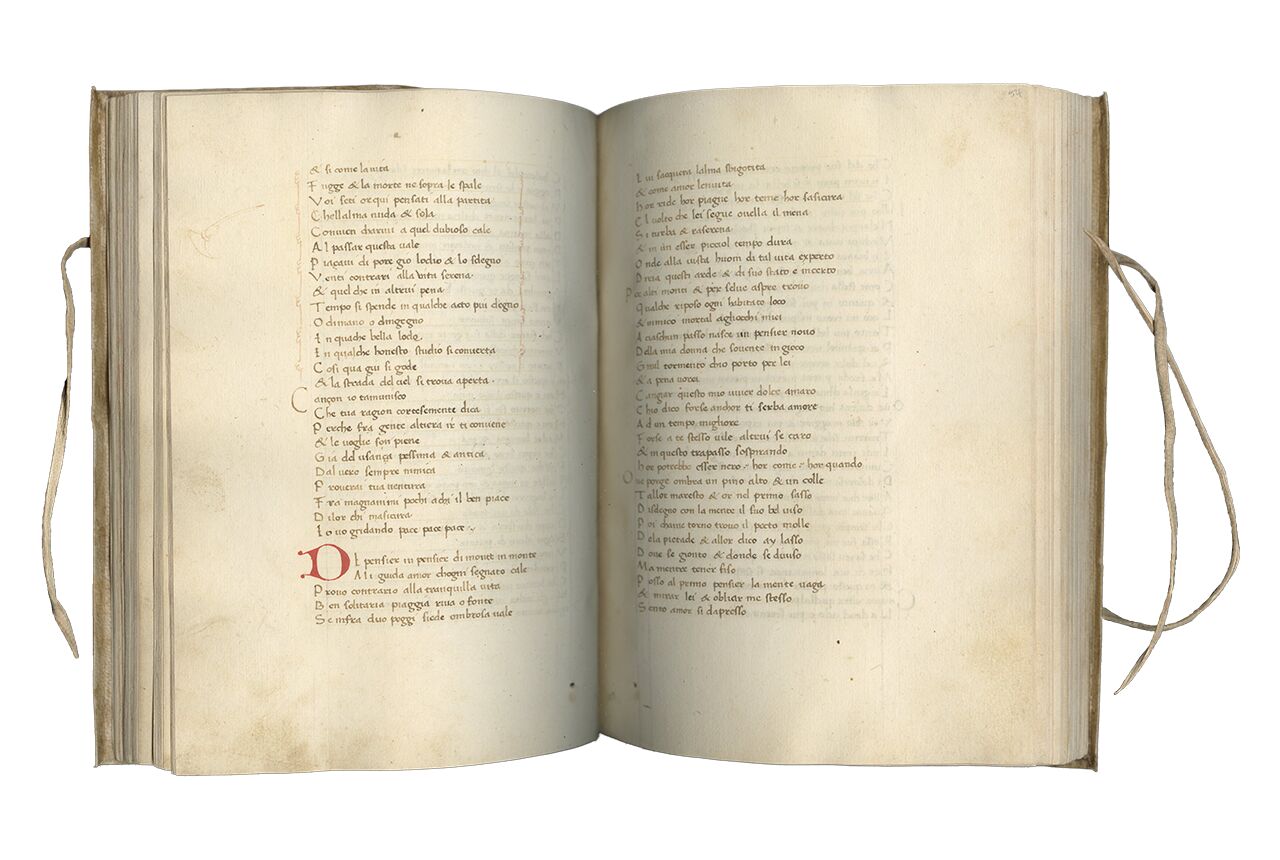 & si come la uita
Fugge & la morte ne sopra le spale
Voi seti or qui pensati alla partita
Chellalma nuda & sola
Conuien charriui a quel dubioso cale
Al passar questa uale
Piaçaui di pore gio lodio & lo sdegno
Venti contrari alla uita serena
& quel che in altrui pena
Tempo si spende in qualche acto piu degno
O di mano o dingegno
In quache bella lode
In qualche honesto studio si conuerta
Cosi qua giu si gode
& la strada del ciel si troua aperta
Cançon io tamunisco
Che tua ragion cortesemente dica
Perche fra gente altiera ir ti conuiene
& le uoglie son piene
Gia del usança pessima & antica
Dal uero sempre nimica
Prouerai tua uentura
Fra magnanimi pochi achi il ben piace
Di lor chi masicura
Io uo gridando pace pace pace
DI pensier in pensier di monte in monte
Mi guida amor chogni segnato cale
Prouo contrario alla tranquilla uita
Ben solitaria piaggia riua o fonte
Se infra duo poggi siede ombrosa uale
54
Iui sacquera lalma sbigotita
& come amor lenuita
Hor ride hor piague hor teme hor sasicura
El uolto che lei segue ouella il mena
Si turba & raserena
& in un esser picciol tempo dura
Onde alla uista huom di tal uita experto
Diria questi arde & di suo stato e incerto
Per alti monti & per selue aspre trouo
Qualche riposo ogni habitato loco
& nimico mortal agliocchi miei
A ciaschun passo nasce un pensier nouo
Della mia donna che souente in gioco
Gira il tormento chio porto per lei
& a pena uorei
Cangiar questo mio uiuer dolce amaro
Chio dico forse anchor ti serba amore
Ad un tempo migliore
Forse a te stesso uile altrui se caro
& in questo trapasso sospirando
Hor potrebbe esser uero hor come hor quando
Oue porge ombra un pino alto & un colle
Tallor maresto & or nel primo sasso
Disegno con la mente il suo bel uiso
Poi chame torno trouo il pecto molle
Dela pietade & allor dico ay lasso
Doue se gionto & donde se diuiso
Ma mentre tener fiso
Posso al primo pensier la mente uaga
& mirar lei & obliar me stesso
Sento amor si dapresso